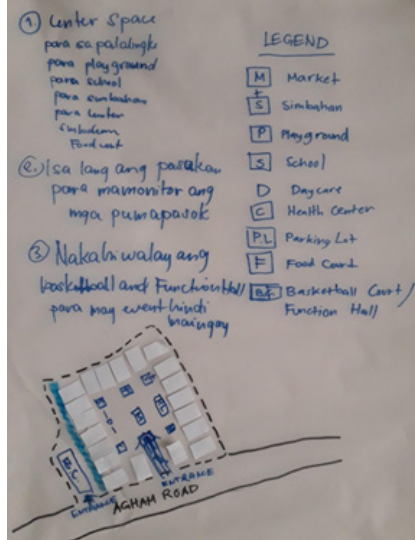 ① Center Space
para sa palaengke
para playground
para school
para simbahan
para center
Food court
②. Isa lang ang pasukan
para mamonitor ang
mga pumapasok
③ Nakahiwalay ang
basketball and Function Hall
para may event hindi
maingay
LEGEND
M Market
S Simbahan
P Playground
S School
D Daycare
C Health Center
P.L Parking Lot
F Food Court
B.C. Basketball Court/
Function Hall
B.C.
ENTRANCE
ENTRANCE
AGHAM ROAD